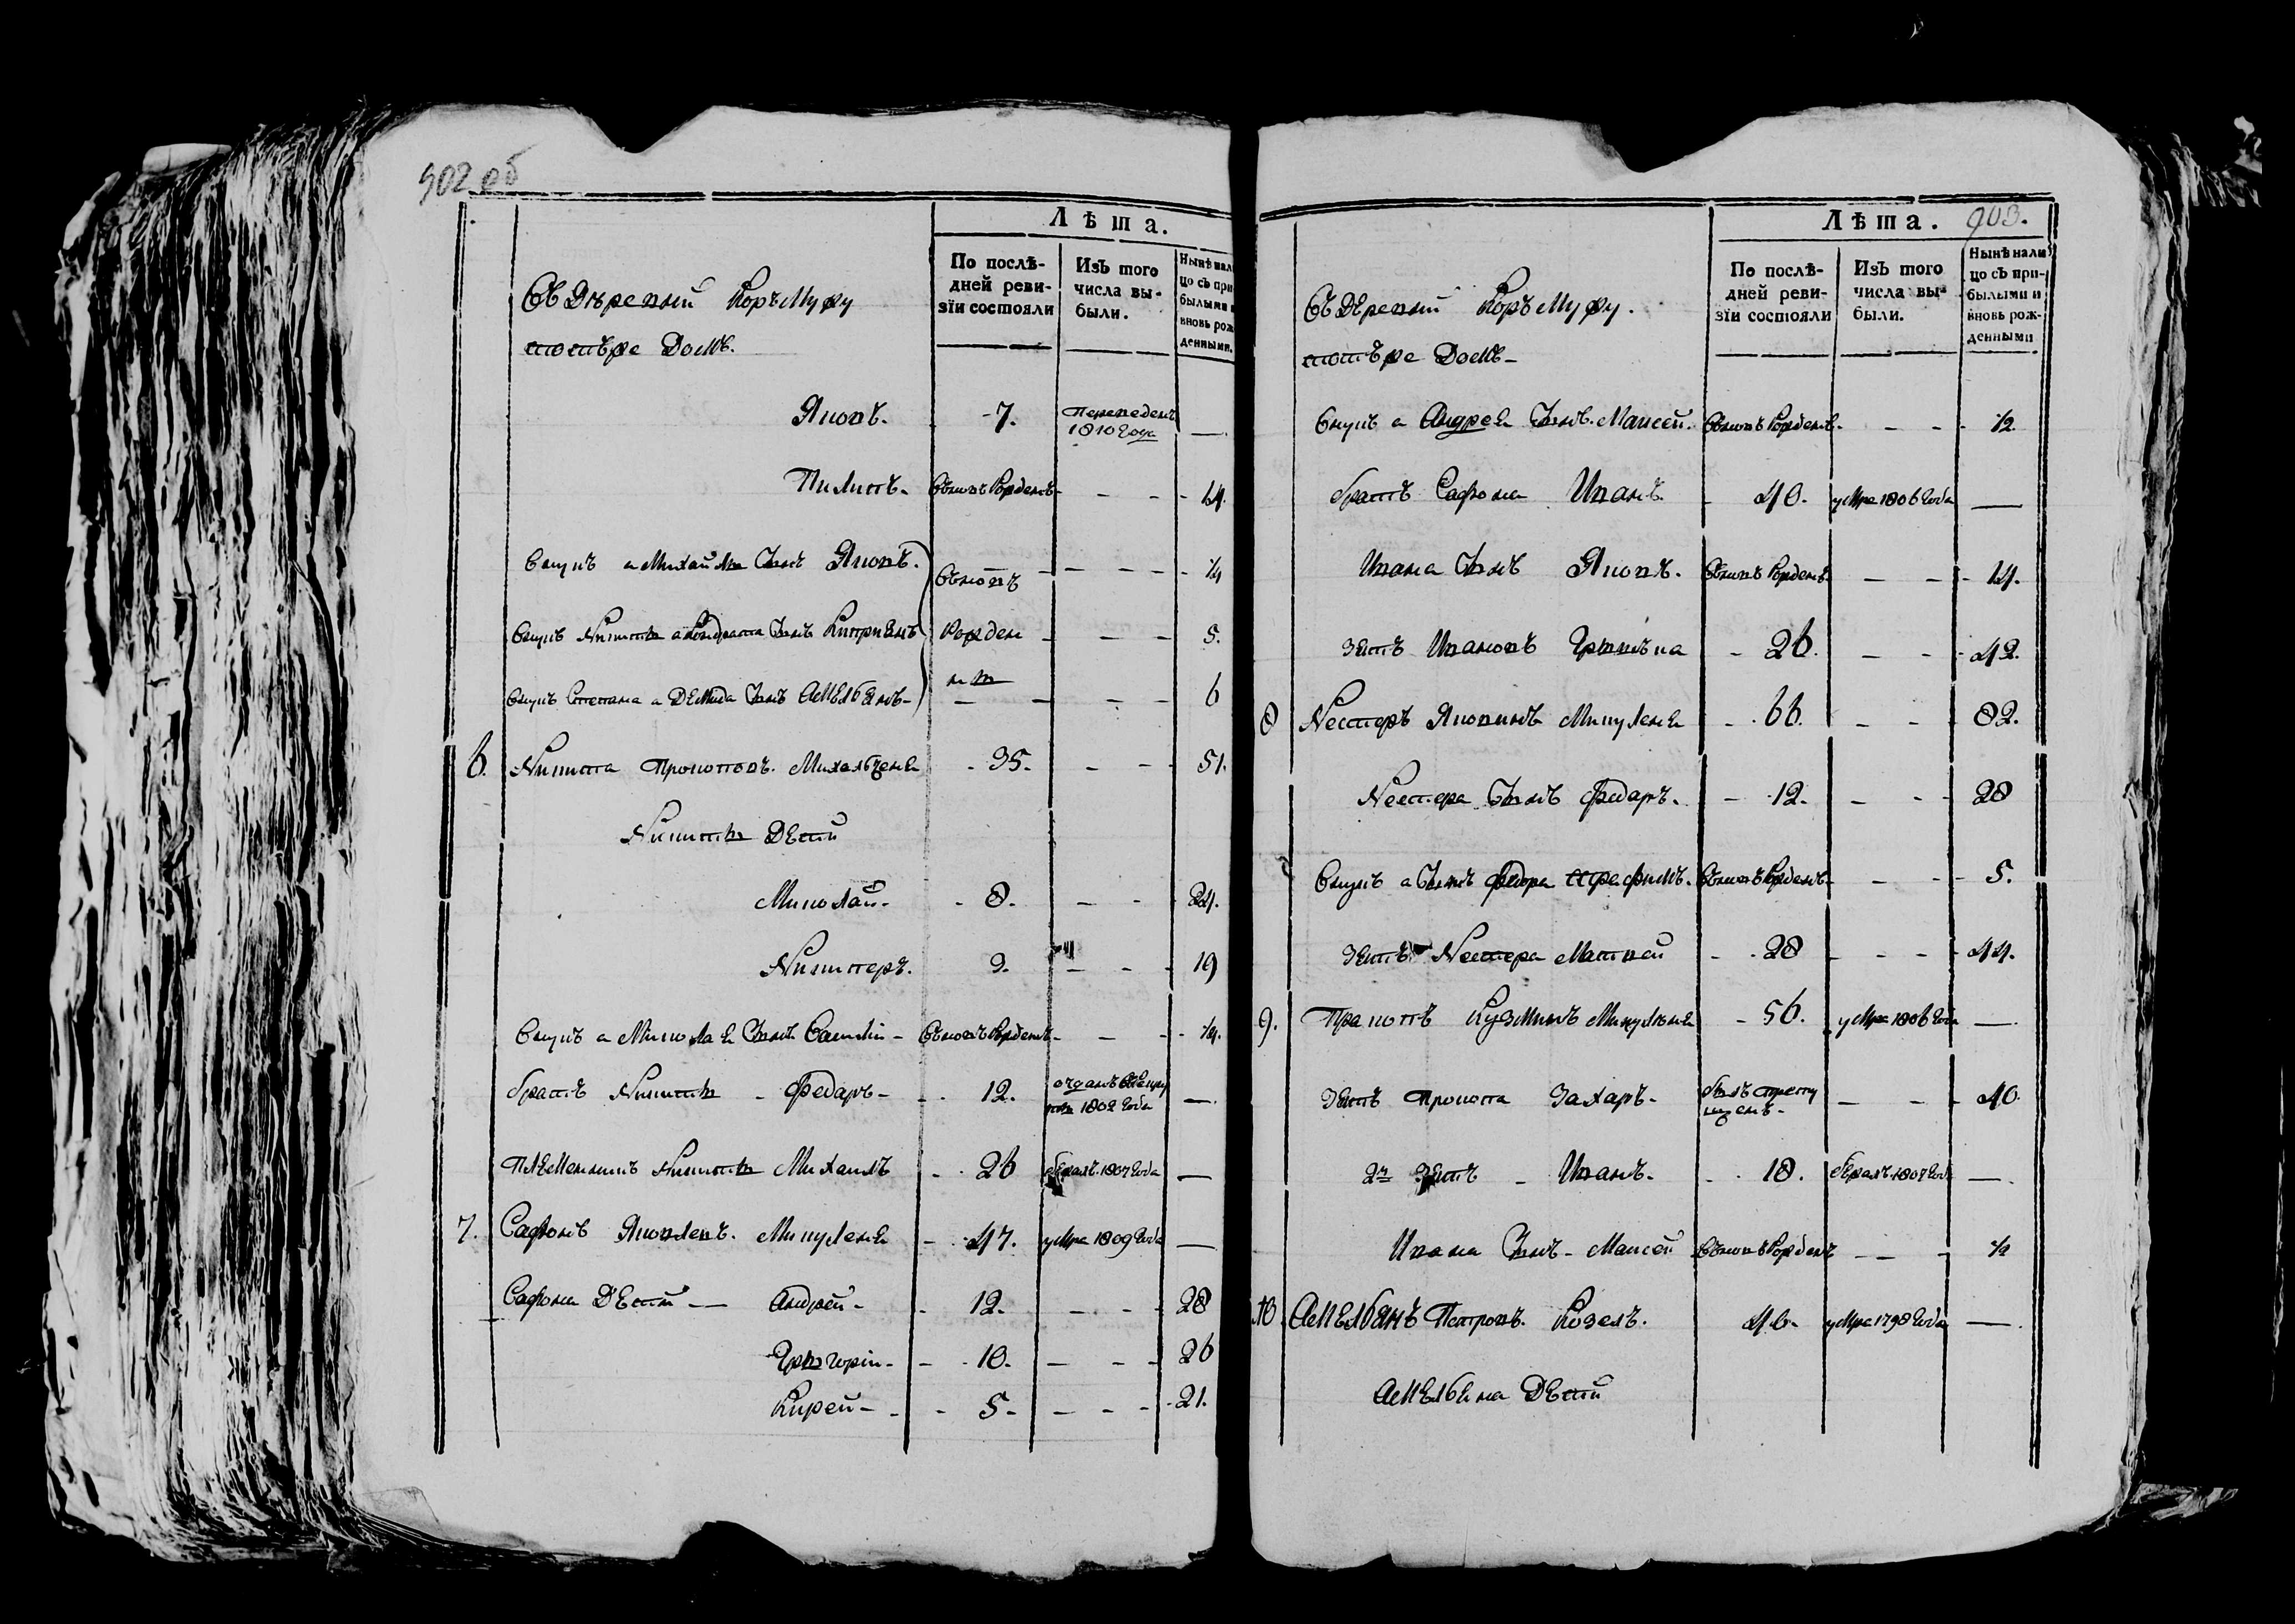 902 об
Лѣта.
По послѣ-
дней реви-
зїи состояли
Изъ того
числа вы-
были.
Нынѣ нали
цо съ при
былыми и
вновь рож
денными.
Яковъ. 7. 1810 года —
Пилипъ. Вновь рожденъ - - 14
Внукъ а Михайлы Сынъ Яковъ. Вновь - - ½
Внукъ Никиты а Кондрата Сынъ Киприянъ рожден - - 5.
Внукъ Степана а Демида Сынъ Амельянъ ны - - 6
6. Никита Прокоповъ. Михальченя 35. - - 51.
Никиты Дети
Миколай. 8. - - 24.
Никипѣръ. 3. - - 19
Внукъ а Миколая Сынъ Вновь рожденъ - -
братъ Никиты - Федаръ - 12. 1802 года —
Племенникъ Никиты Михаилъ 26 бежалъ 1807 года —
7. Сафонъ Яковлевъ. Микуленя 47. умре 1809 года —
Сафона Дети — Андрей - 12. - - 28
Грыгорiй - 10. - - 26
Кирей - 5 - - - 21.
903.
Лѣта.
По послѣ-
дней реви-
зїи состояли
Изъ того
числа вы-
были.
Нынѣ нали
цо съ при-
былыми и
вновь рож-
денными
Внукъ а Андрея Сынъ Маисей. Вновь рожденъ - - ½
братъ Сафона Иванъ 40. умре 1806 года —
Ивана Сынъ Яковъ. Вновь рожденъ - - 14.
зять Ивановъ 26. - - 42.
8 Несторъ Яковинъ Микуленя 66. - - 82.
Нестера Сынъ Федаръ. 12. - - 28
Внукъ а Сынъ Федора Вновь рожденъ - - 5.
зять Нестера Матвей 28 - - 44.
9. Пракопъ Кузминъ Микуленя 56. умре 1806 года —
зять Прокопа Захаръ - былъ - - 40
2й зять - Иванъ. 18. бежалъ 1807 года —
Ивана Сынъ - Маисей Вновь рожденъ - - ½
10 Амельянъ Петровъ. Козелъ. 46. умре 1798 года —
Амельяна Дети